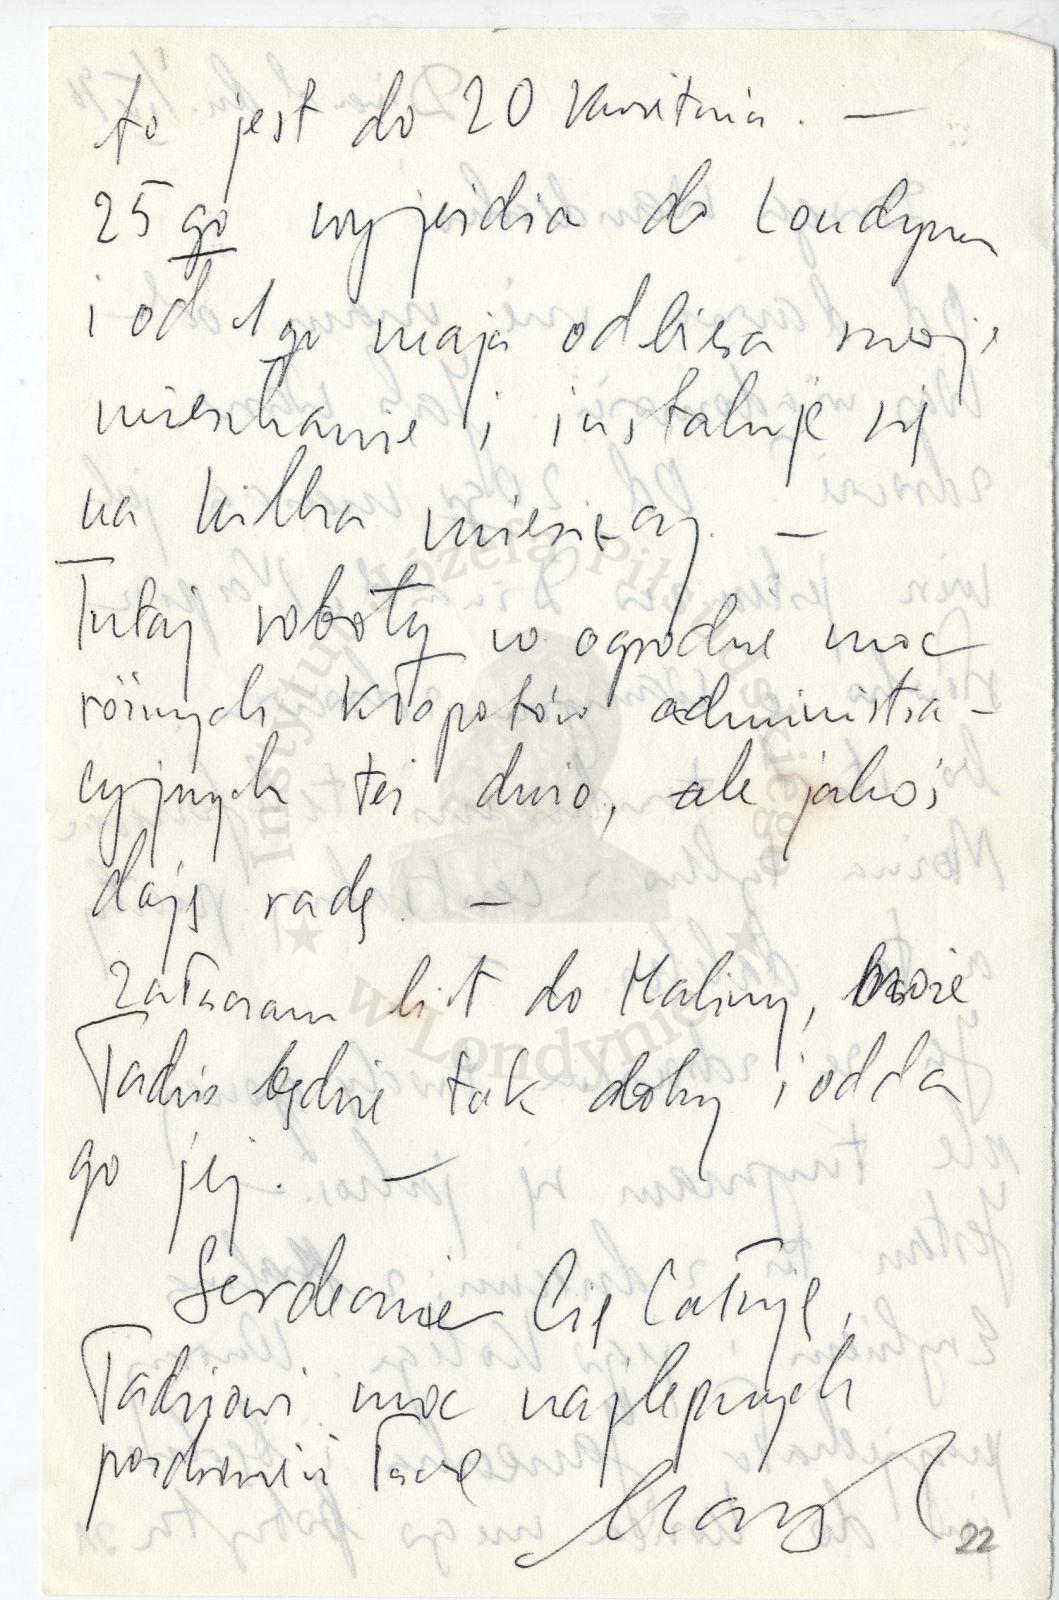 to jest do 20 Kwietnia. —
25 go wyjeżdża do Londynu
i od 1 go maja odbiera swoje
mieszkanie i instaluje się
na kilka miesięcy. —
Tutaj roboty w ogrodzie moc
różnych kłopotów administra-
cyjnych też dużo, ale jakoś
daję radę. —
Załączam list do Haliny, może
Tadzio będzie tak dobry i odda
go jej. —
Serdecznie Cię Całuję,
Tadziowi moc najlepszych
pozdrowień łączę
22
Instytut Józefa Piłsudskiego
w Londynie